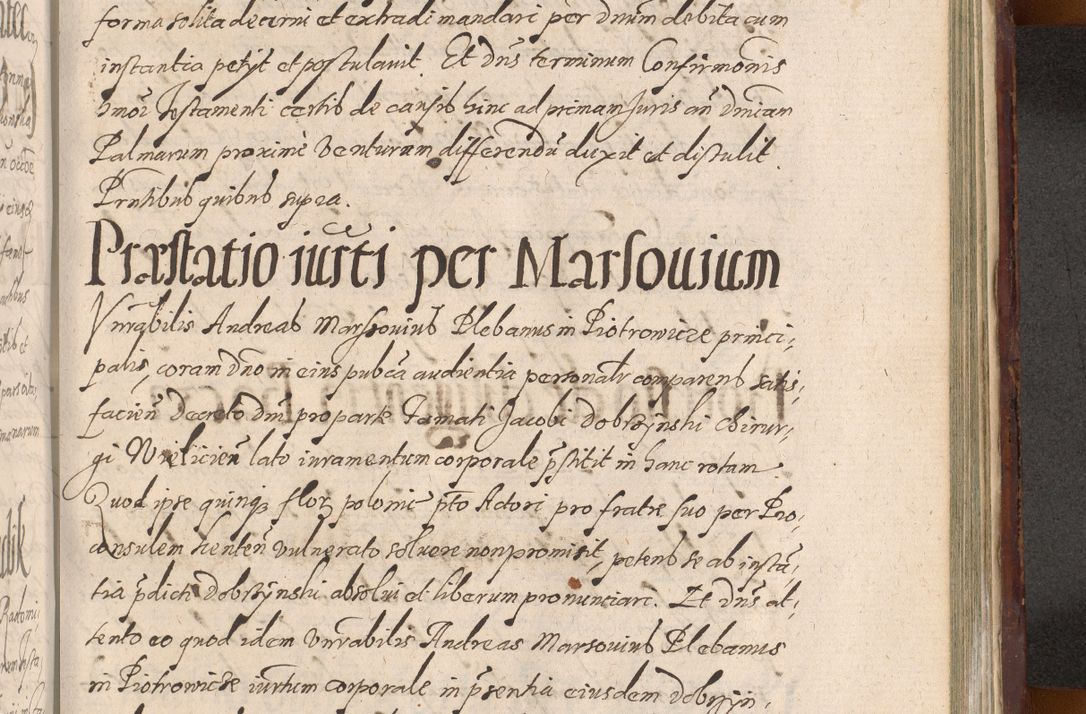 forma solita decerni et extradi mandari per dnum debita cum
instantia petyt et postulauit. Et dns terminum Confirmonis
hmoi Testamenti certis de causis hinc ad primam Juris an dnicam
Palmarum proximè venturam differendū duxit et distulit.
Prntibus quibus supra.
Præstatio iurti per Marsouium
Vnrabilis Andreas Marssouius Plebanus in Piotrowicze princi,
palis, coram dno in eius pubca audientia personalr comparens satis,
facien decreto dni pro parte Famati Jacobi Dobrzynski Chirur,
gi Wielicien lato iuramentum corporale pstitit in hanc rotam
Quod ipse quinq flor polonic pto Actori pro fratre suo per Pro,
consulem Kenten vulnerato soluere non promisit, petens se ab instā,
tia pdicti Dobrzynski absolui et liberum pronunciari. Et dns at,
tento eo quod idem Vnrabilis Andreas Marsouius Plebanus
in Piotrowicze iurtum corporale in psentia eiusdem Dobrzyn,